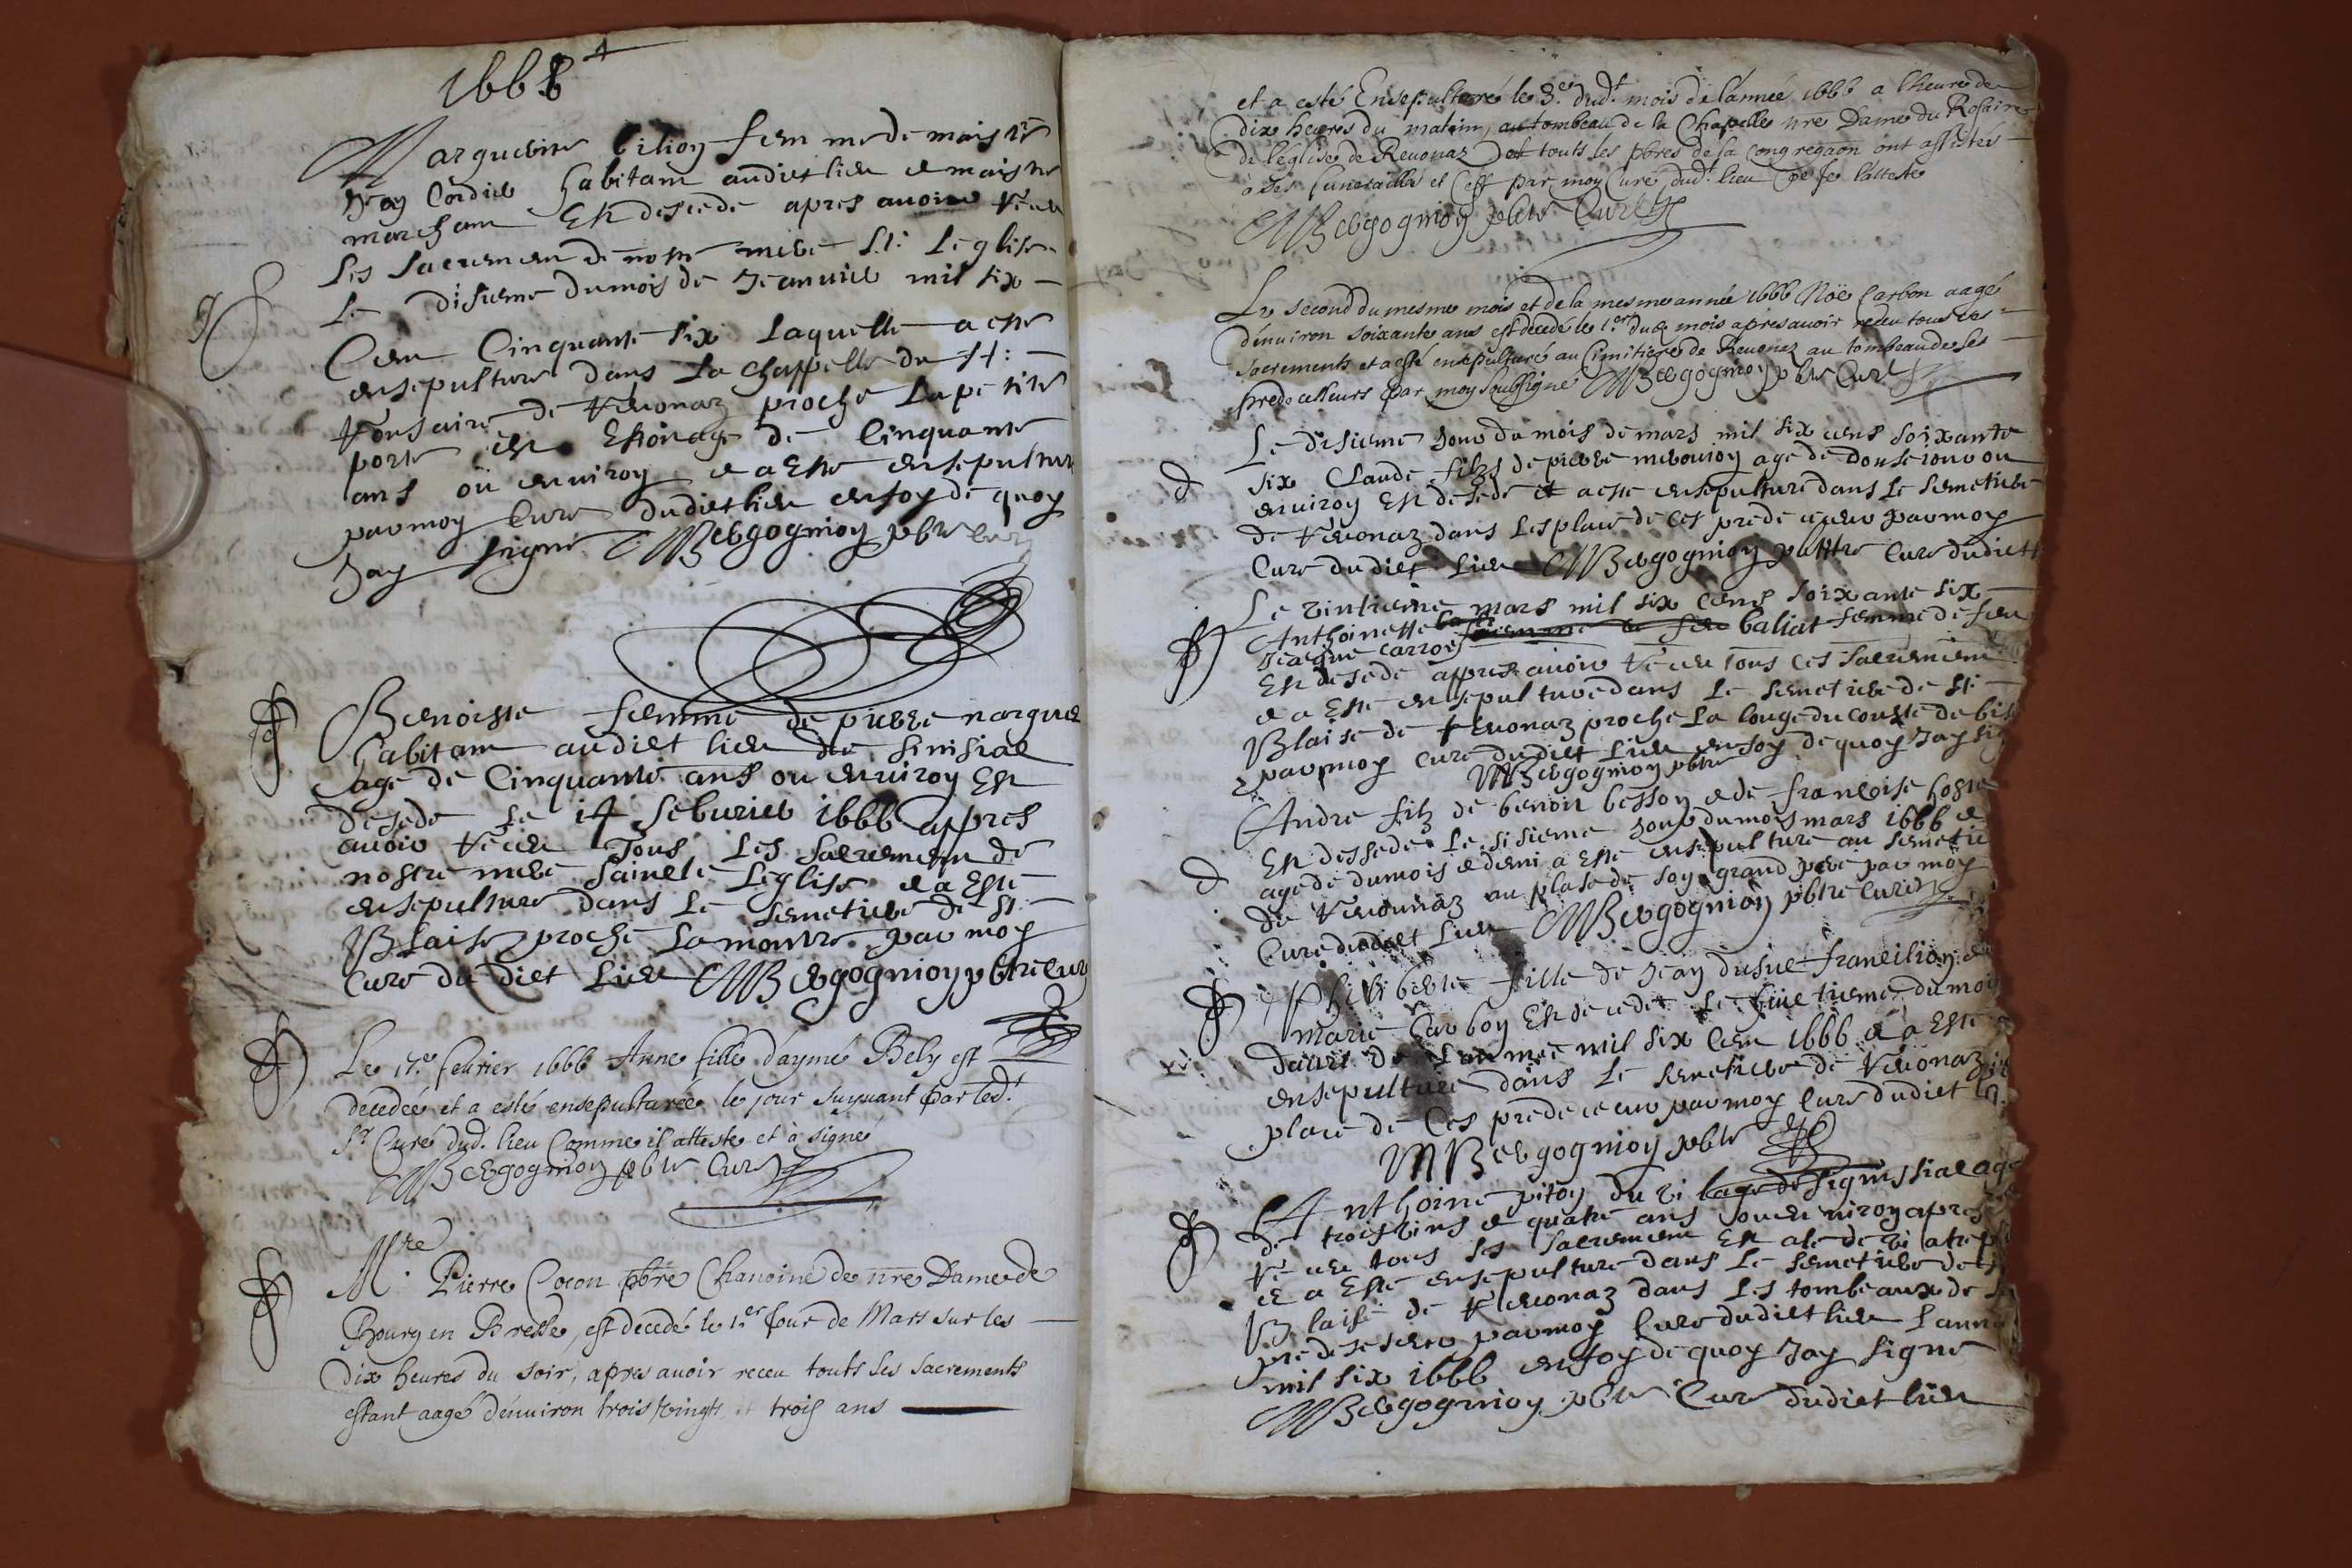 1666
Marguerite bilion femme de maistre
Jean Cordier habitant audict lieu et maistre
marchant Est descede apres avoir receu
les sacremens de nostre mere ste leglise
Le disieme du mois de Jeanvier mil six
Cent Cinquante six laquelle a este
ensepulture dans La chappelle du st:
Rousaire de Revonaz proche La petite
porte Estoit age de Cinquante
ans ou environ et a Este ensepulture
par moy Cure dudict lieu en foy de quoy
Jay signe MBergognion pbtre cure
Benoiste femme de pierre
habitant audict lieu de Sinisiat
age de Cinquante ans ou environ Est
desede le 14 feburier 1666 appres
avoir receu Tous Les Sacremens de
nostre mere Saincte Leglise et a Este
ensepulture dans Le Semetiere de St
Blaise proche La montre par moy
Cure du dict Lieu MBergognion pbtre cure
Le 17e fevrier 1666 Anne fille d'aymé Bely est
decedée et a esté ensepulturée le jour suyvant par led.t
Sr Curé dud. lieu Comme il atteste et à signé
MBergognion pbtre Cure
Mre Pierre Cocon pbre Chanoine de nre Dame de
Bourg en Bresse, est decedé le 1er Jour de Mars sur les
Dix heures du soir, apres avoir receu touts les sacrements
estant aagé d'environ trois vingts et trois ans
et a esté Ensepulturé le 3e dud.t mois de l'année 1666 a l'heure de
dix heures du matin, au tombeau de la Chapelle nre Dame du Rosaire
de l'eglise de Revonaz touts les pbres de la congregaon ont assistés
à ses funerailles et par moy Curé dud.t lieu Je l'atteste
MBergognion pbtre Cure
Le second du mesme mois et de la mesme année 1666 Noë Carbon aagé
d'environ soixante ans est decedé le 1er dud mois apres avoir receu tous les
sacrements et a esté ensepulturé au Cimitiere de Revonaz au tombeau de ses
predecesseurs par moy soubsigné MBergognion pbtre Cure
Le disieme Jour du mois de mars mil six cens soixante
six Claude filz de pierre age de douse Jour ou
environ Est desede et a este ensepulture dans le semetiere
de Revonaz dans Les place de ces predeceseur par moy
Cure dudict Lieu MBergognion pbtre Cure dudict
Le vintieme mars mil six cens soixante six
Anthoinette baliat femme de feu
Jacque Carron
Est desede appres avoir receu tous ces sacremens
et a Este ensepulture dans Le semetiere de st
Blaise de Revonaz proche La louge du couste de bise
par moy cure dudict Lieu en foy de quoy Jay sig
MBergognion pbtre
Andre filz de benoit besson et de francoise
Est dessede Le sisieme Jour du mois mars 1666 et
age de du mois et demi a Este ensepulture au semetie
de Revounaz au plase de son grand pere par moy
Cure dudict Lieu MBergognion pbtre Cure
Philiberte fille de Jean francilion et
Marie Carbon Est decede Le huictieme du moi
davri de Lannee mil six cent 1666 et a Este
ensepulture dans Le semetiere de Revonaz
place de Ces predeceseur par moy Cure dudict
MBergognion pbtre
Anthoine piton du vilage de Signissiat age
de trois vins et quatre ans ou environ apres
receu tous les sacremens Est ale de vi a trep
et a Este ensepulture dans Le semetiere de st
Blaise de Revonaz dans Les tombeaux de
predeseseur par moy Cure dudict lieu Lanne
mil six 1666 en foy de quoy Jay signe
MBergognion pbtre Cure dudict lieu